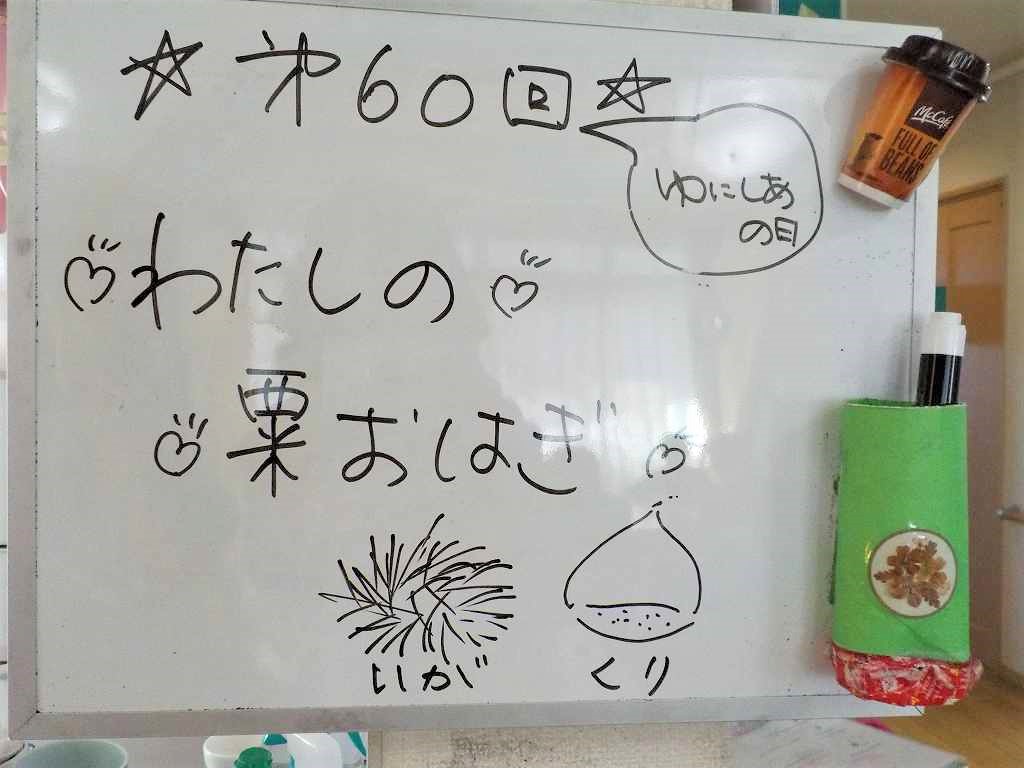 ☆ 第60回 ☆
ゆにしあ
の日
わたしの
栗おはぎ
いが
くり
McCafé
FULL OF
BEANS